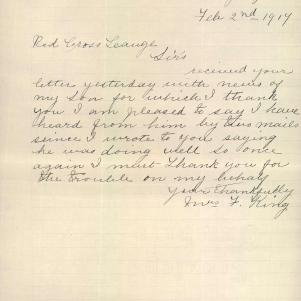 Feb 2nd 1917
Red Cross Leauge
Sir's
received your
letter yesterday with news of
my son for which I thank
you I am pleased to say I have
heard from him by this mails
seince I wrote to you saying
he was doing well so once
again I must thank you for
the trouble on my behalf
your thankfully
Mrs F. King